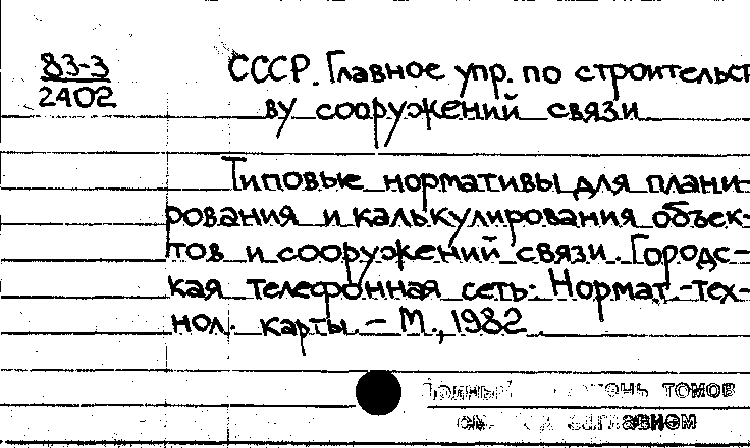 83-3
2402
СССР. Главное упр. по строительст
ву сооружений связи
Типовые нормативы для плани-
рования и калькулирования объек-
тов и сооружений связи. Городс-
кая телефонная сеть: Нормат.-тех-
нол. карты. – М., 1982.
томов